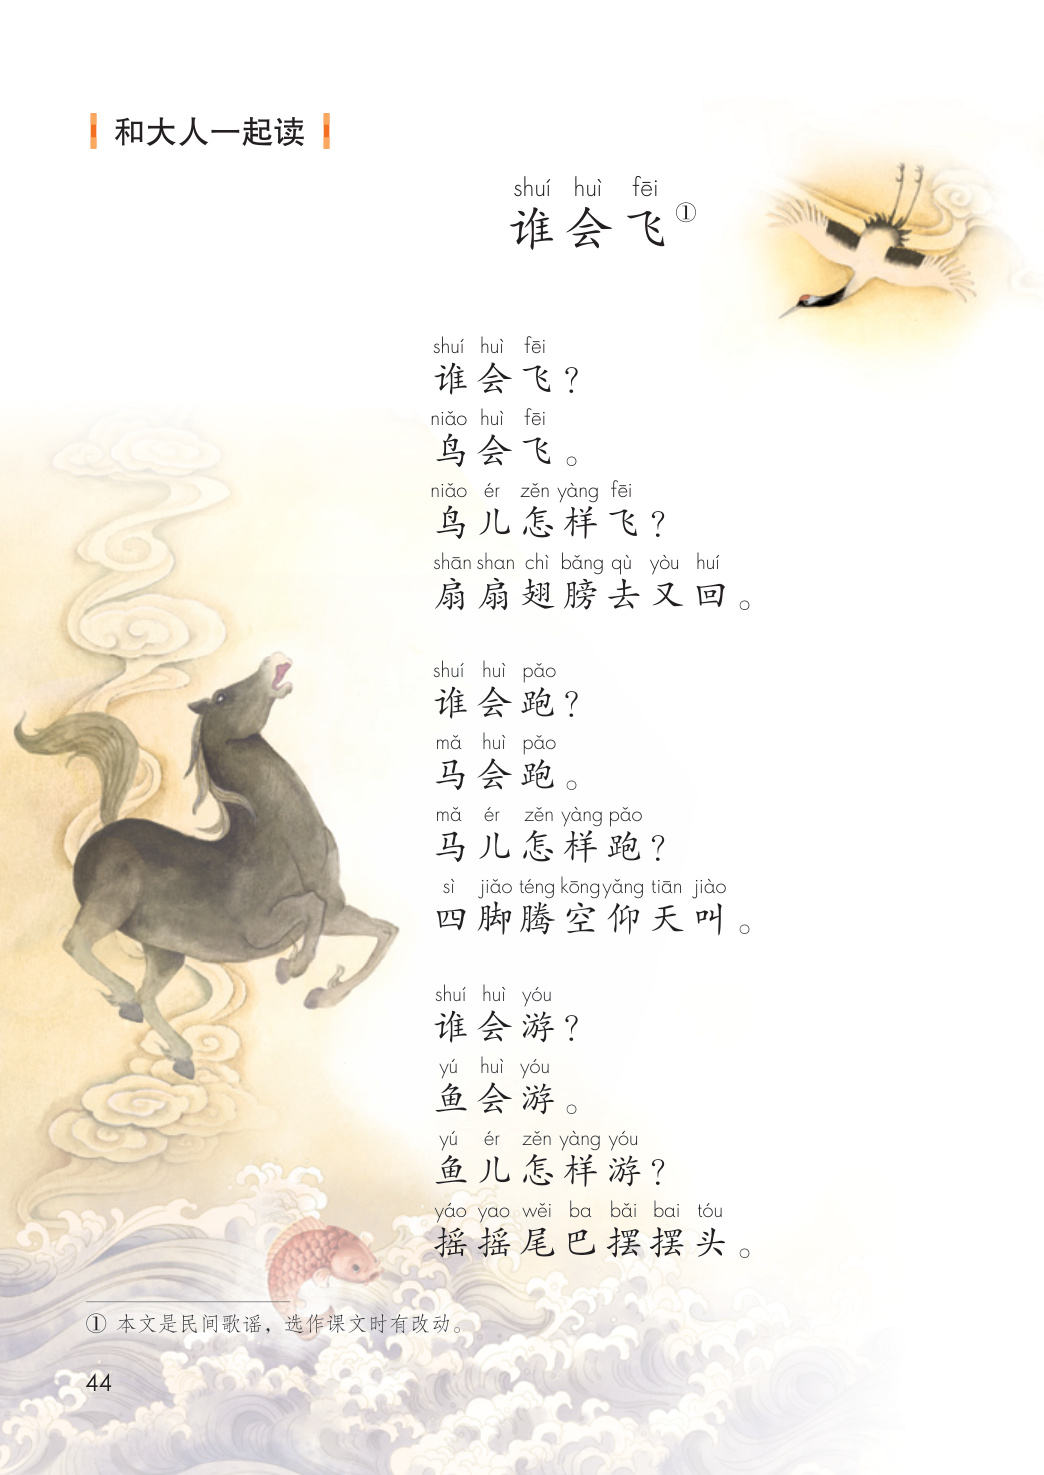 和大人一起读
shuí huì fēi
谁会飞①
shuí huì fēi
谁会飞？
niǎo huì fēi
鸟会飞。
niǎo ér zěn yàng fēi
鸟儿怎样飞？
shān shan chì bǎng qù yòu huí
扇扇翅膀去又回。
shuí huì pǎo
谁会跑？
mǎ huì pǎo
马会跑。
mǎ ér zěn yàng pǎo
马儿怎样跑？
sì jiǎo téng kōng yǎng tiān jiào
四脚腾空仰天叫。
shuí huì yóu
谁会游？
yú huì yóu
鱼会游。
yú ér zěn yàng yóu
鱼儿怎样游？
yáo yao wěi ba bǎi bai tóu
摇摇尾巴摆摆头。
① 本文是民间歌谣，选作课文时有改动。
44